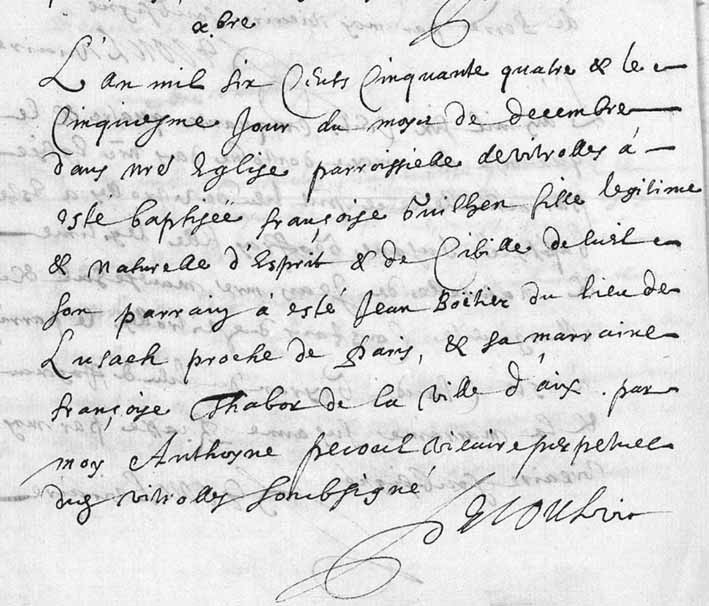 xbre
L'An mil six Cents Cinquante quatre & le
Cinquiesme Jour du moys de decembre
dans nre Eglise parroissielle de vitrolles à
esté baptiséé françoise Guilhen fille legitime
& naturelle d'Esprit & de Cibille
son parrain à esté Jean du lieu de
Lusach proche de paris, & sa marraine
françoise Thabor de la ville d'aix . par
moy Anthoyne pecoul vicaire perpetuel
dud vitrolles soubsigné